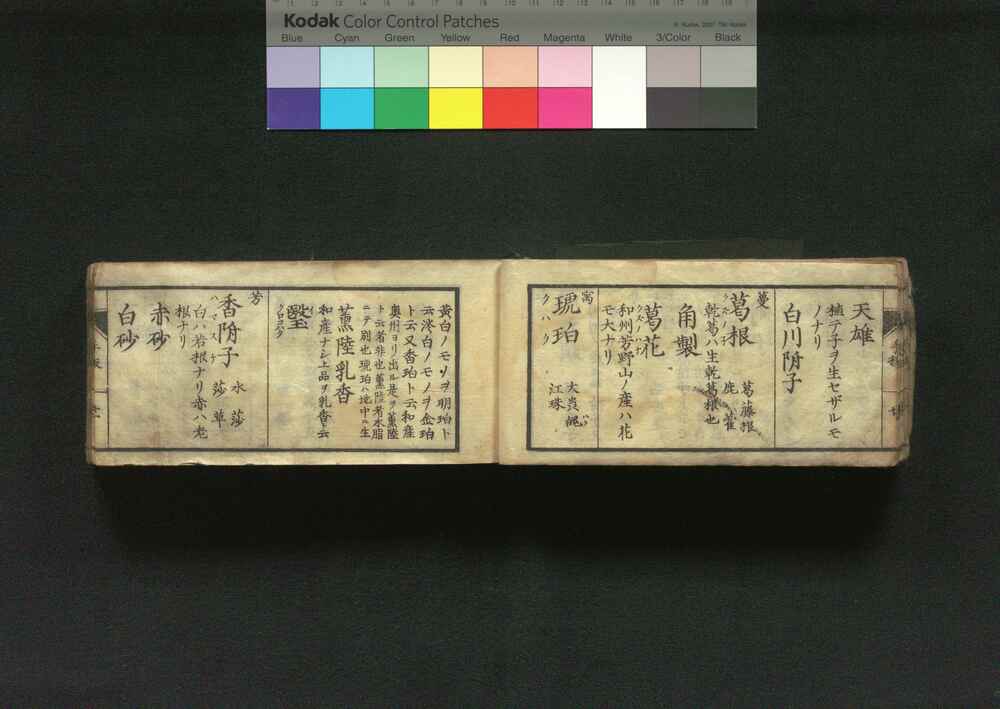 Kodak Color Control Patches
Blue Cyan Green Yellow Red Magenta White 3/Color Black
天雄
植テ子ヲ生セザルモ
ノナリ
白川附子
蔓
葛根
葛藤根
鹿藿
乾葛ハ生乾葛根也
角製
葛花
クズノハナ
和州芳野山ノ産ハ花
モ大ナリ
寓
琥珀
クハク
江珠
黄白ノモノヲ明珀ト
云淡白ノモノヲ金珀
ト云又香珀ト云和産
奥州ヨリ出ル是ヲ薫陸
ト云者非也薫陸者木脂
ニテ別也琥珀ハ地中ニ生
薫陸乳香
和産ナシ上品ヲ乳香ト云
瑿
クロコハク
芳
香附子
ハマスゲ
水莎
莎草
白ハ若根ナリ赤ハ老
根ナリ
赤砂
白砂